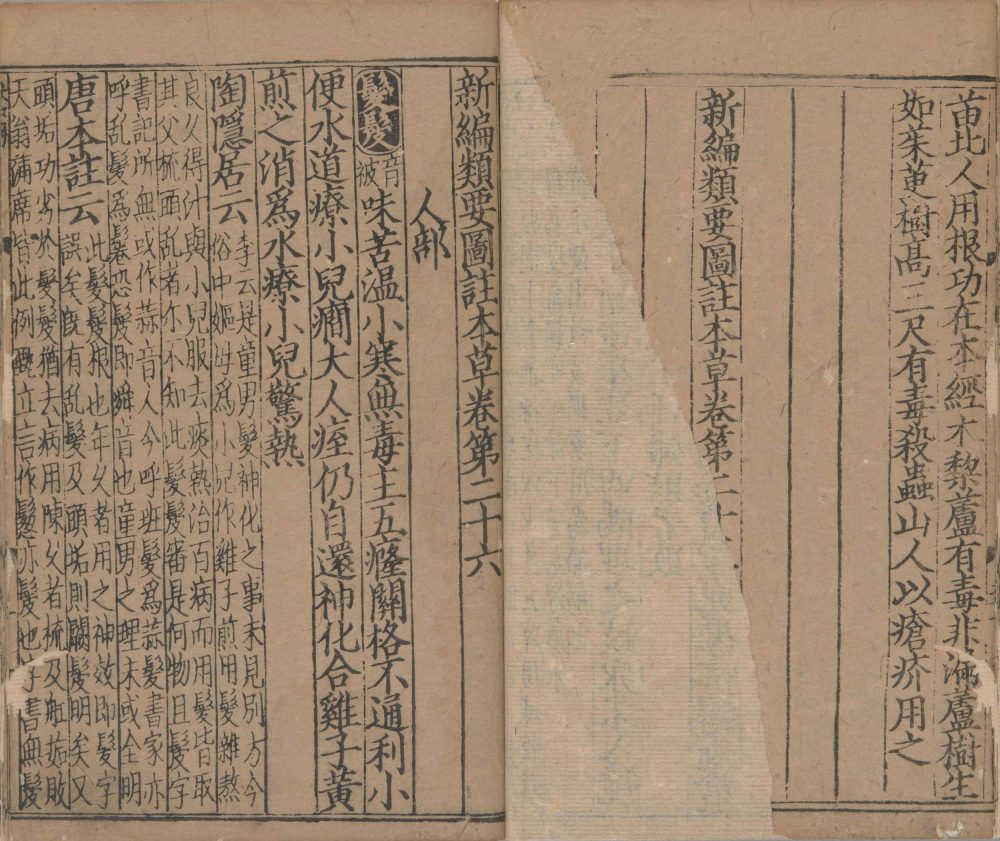 苗北人用根功在本經木黎蘆有毒非漏蘆樹生
如茱萸樹高三尺有毒殺蟲山人以瘡疥用之
新編類要圖註本草卷第二十
新編類要圖註本草卷第二十六
人部
髮髲音被味苦溫小寒無毒主五癃關格不通利小
便水道療小兒癇大人痓仍自還神化合雞子黃
煎之消爲水療小兒驚熱
陶隱居云李云是童男髮神化之事未見別方今
俗中嫗母爲小兒作雞子煎用髮雜熬
良久得汁與小兒服去痰熱治百病而用髮皆取
其父梳頭乱者亦不知此髮髲審是何物且髲字
書記所無或作蒜音人今呼班髮爲蒜髮書家亦
呼乱髮爲鬈恐髲即舜音也童男之理未或全明
唐本註云此髮髲根也年久者用之神效即髮字
誤矣旣有乱髮及頭垢則闕髮明矣又
頭垢功劣於髮髲猶去病用陳久者梳及舡茹敗
天翁蒲席皆此例甄立言作鬈亦髮也字書無髲